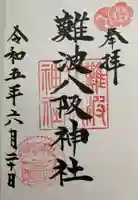 奉拝
難波八阪神社
令和五年六月二十日
難波
神社